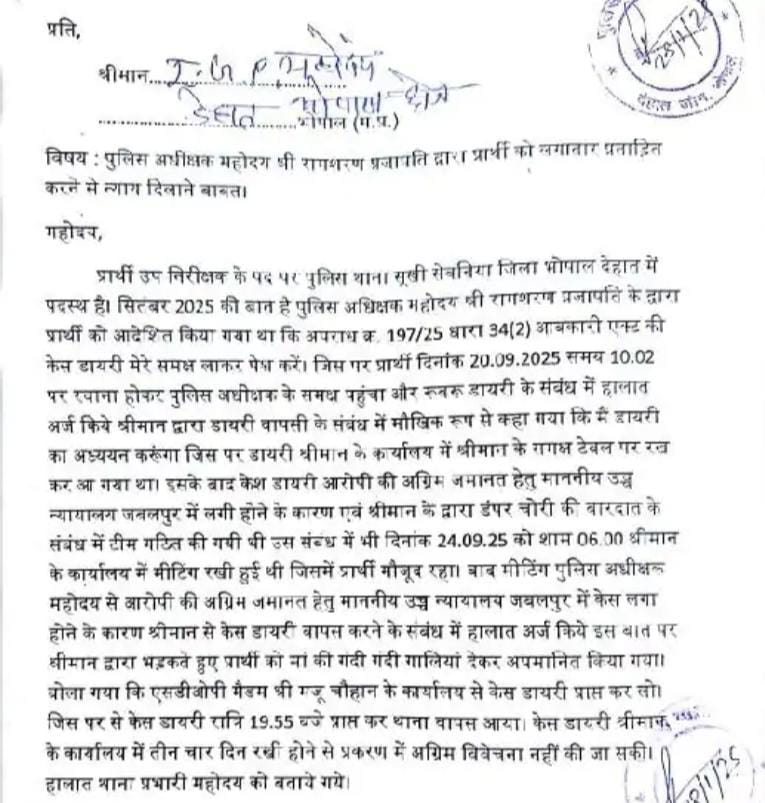 प्रति,
श्रीमान I.G.P महोदय
देहात भोपाल क्षेत्र
भोपाल (म.प्र.)
28/1/25
देहात जोन, भोपाल
विषय : पुलिस अधीक्षक महोदय श्री रामशरण प्रजापति द्वारा प्रार्थी को लगातार प्रताड़ित
करने से न्याय दिलाने बाबत।
महोदय,
प्रार्थी उप निरीक्षक के पद पर पुलिस थाना सूखी सेवनिया जिला भोपाल देहात में
पदस्थ है। सितंबर 2025 की बात है पुलिस अधिक्षक महोदय श्री रामशरण प्रजापति के द्वारा
प्रार्थी को आदेशित किया गया था कि अपराध क्र. 197/25 धारा 34(2) आबकारी एक्ट की
केस डायरी मेरे समक्ष लाकर पेश करें। जिस पर प्रार्थी दिनांक 20.09.2025 समय 10.02
पर रवाना होकर पुलिस अधीक्षक के समक्ष पहुंचा और रूबरू डायरी के संबंध में हालात
अर्ज किये श्रीमान द्वारा डायरी वापसी के संबंध में मौखिक रूप से कहा गया कि मैं डायरी
का अध्ययन करूंगा जिस पर डायरी श्रीमान के कार्यालय में श्रीमान के समक्ष टेबल पर रख
कर आ गया था। इसके बाद केश डायरी आरोपी की अग्रिम जमानत हेतु माननीय उच्च
न्यायालय जबलपुर में लगी होने के कारण एवं श्रीमान के द्वारा डंपर चोरी की वारदात के
संबंध में टीम गठित की गयी थी उस संबंध में भी दिनांक 24.09.25 को शाम 06.00 श्रीमान
के कार्यालय में मीटिंग रखी हुई थी जिसमें प्रार्थी मौजूद रहा। बाद मीटिंग पुलिस अधीक्षक
महोदय से आरोपी की अग्रिम जमानत हेतु माननीय उच्च न्यायालय जबलपुर में केस लगा
होने के कारण श्रीमान से केस डायरी वापस करने के संबंध में हालात अर्ज किये इस बात पर
श्रीमान द्वारा भड़कते हुए प्रार्थी को मां की गंदी गंदी गालियां देकर अपमानित किया गया।
बोला गया कि एसडीओपी मैडम श्री मंजू चौहान के कार्यालय से केस डायरी प्राप्त कर लो।
जिस पर से केस डायरी रात्रि 19.55 बजे प्राप्त कर थाना वापस आया। केस डायरी श्रीमान
के कार्यालय में तीन चार दिन रखी होने से प्रकरण में अग्रिम विवेचना नहीं की जा सकी।
हालात थाना प्रभारी महोदय को बताये गये।